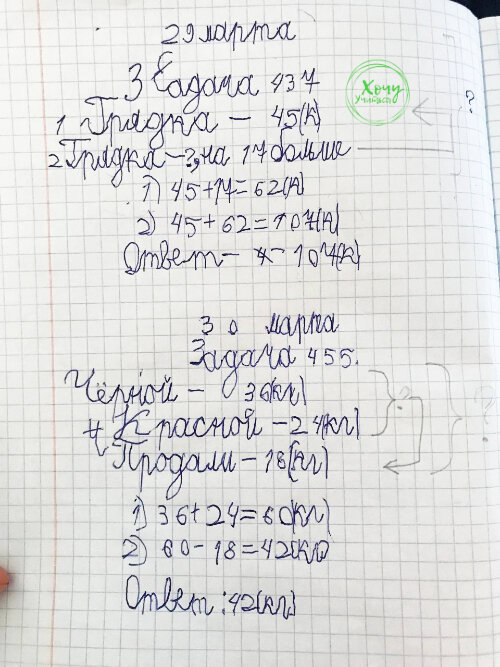 29 марта
Задача 437
Хочу
Учиться
1 Грядка – 45(к)
?
2 Грядка – ?, на 17 больше
1) 45+17=62(к)
2) 45+62=107(к)
Ответ – 107(к)
30 марта
Задача 455.
Чёрной – 36(кг)
Красной – 24(кг)
?
Продали – 18(кг)
1) 36+24=60(кг)
2) 60-18=42(кг)
Ответ: 42(кг)